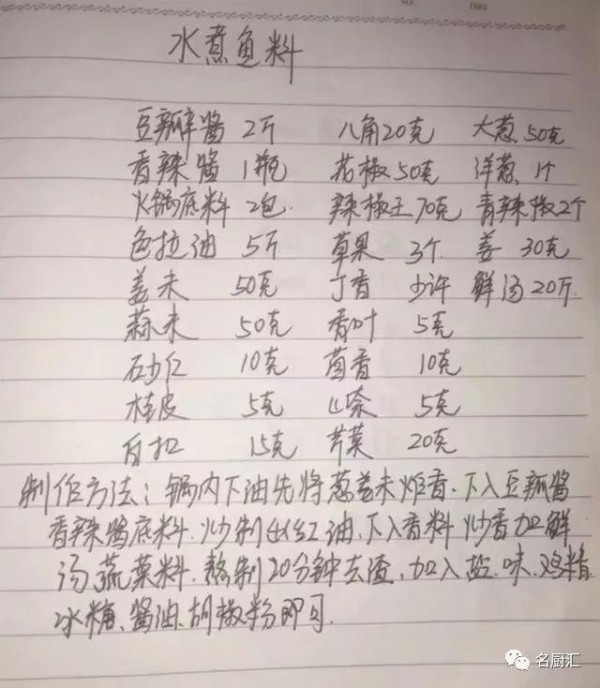 水煮鱼料
豆瓣酱 2斤 八角20克 大葱50克
香辣酱 1瓶 花椒50克 洋葱1个
火锅底料 2包. 辣椒王70克 青辣椒2个
色拉油 5斤 草果 3个. 姜 30克
姜末 50克 丁香 少许 鲜汤20斤.
蒜末 50克 香叶 5克
砂仁 10克 茴香 10克
桂皮 5克 山奈 5克
白扣 15克 芹菜 20克
制作方法: 锅内下油先将葱姜末炸香.下入豆瓣酱
香辣酱底料.炒制出红油,下入香料炒香加鲜
汤蔬菜料.熬制20分钟去渣,加入盐.味.鸡精
冰糖、酱油.胡椒粉即可.
名厨汇